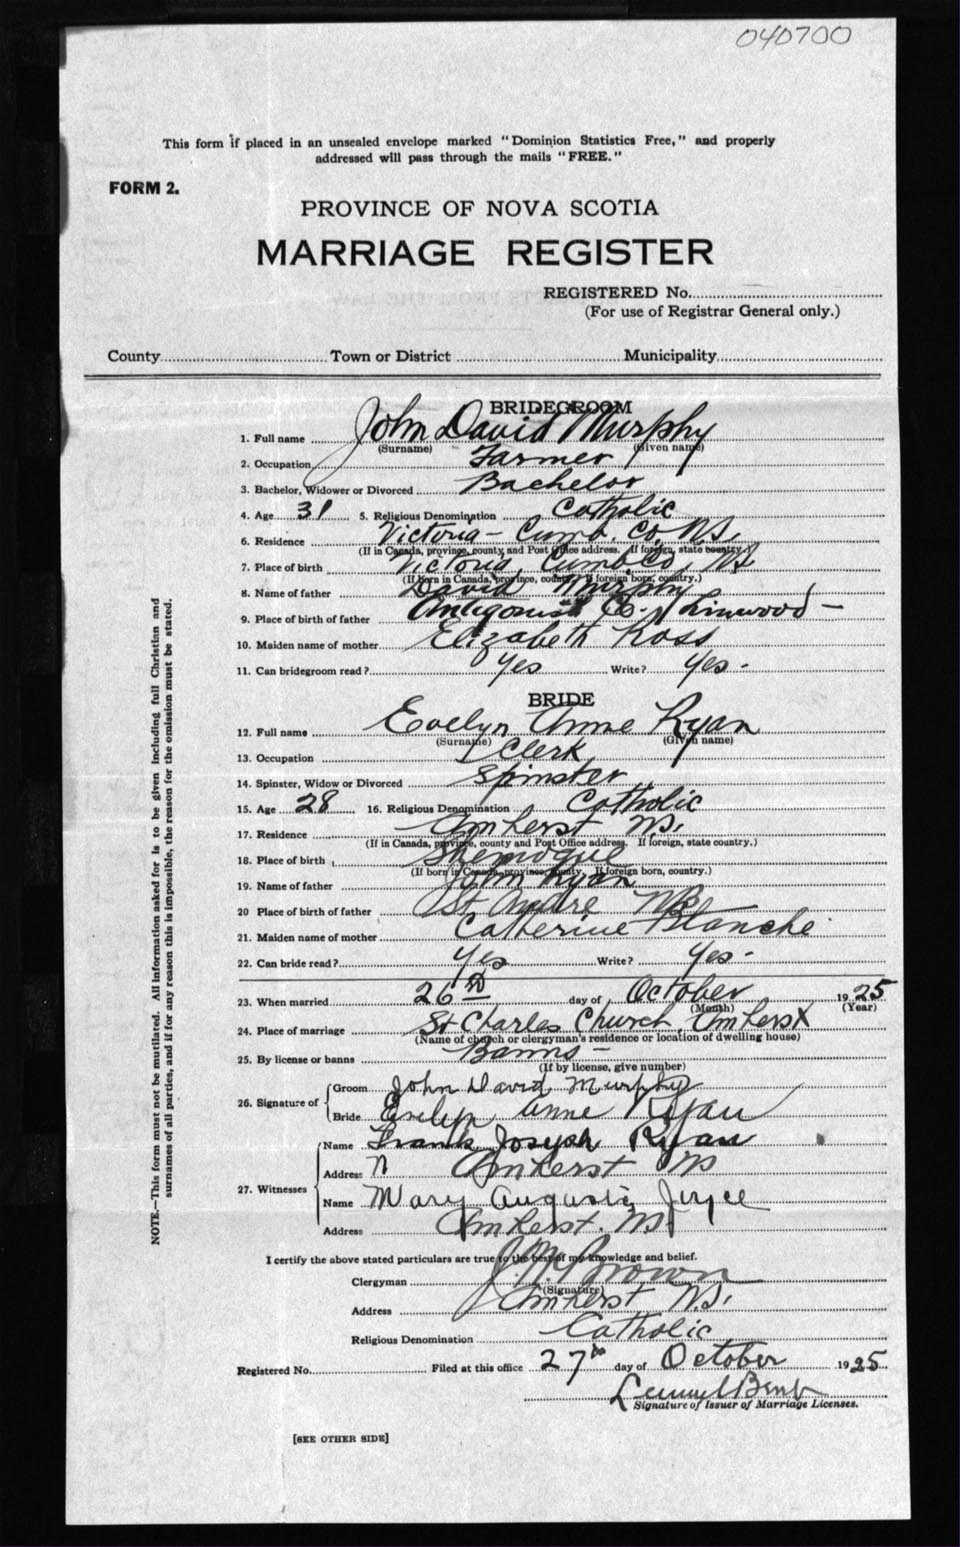 040700
This form if placed in an unsealed envelope marked "Dominion Statistics Free," and properly
addressed will pass through the mails "FREE."
FORM 2.
PROVINCE OF NOVA SCOTIA
MARRIAGE REGISTER
REGISTERED No.
(For use of Registrar General only.)
County Town or District Municipality
BRIDEGROOM
1. Full name John David Murphy
(Surname) (Given name)
2. Occupation Farmer
3. Bachelor, Widower or Divorced Bachelor
4. Age 31 5. Religious Denomination Catholic
6. Residence Victoria - Cumb. Co. N.S.
(If in Canada, province, county and Post Office address. If foreign, state country.)
7. Place of birth Victoria, Cumb Co, N.S.
(If born in Canada, province, county. If foreign born, country.)
8. Name of father David Murphy
9. Place of birth of father Antigonish Co. Linwood -
10. Maiden name of mother Elizabeth Ross
11. Can bridegroom read? Yes Write? Yes -
BRIDE
12. Full name Evelyn Anne Ryan
(Surname) (Given name)
13. Occupation Clerk
14. Spinster, Widow or Divorced Spinster
15. Age 28 16. Religious Denomination Catholic
17. Residence Amherst N.S.
(If in Canada, province, county and Post Office address. If foreign, state country.)
18. Place of birth Shemogue
(If born in Canada, province, county. If foreign born, country.)
19. Name of father John Ryan
20 Place of birth of father St. André NB
21. Maiden name of mother Catherine Blanche
22. Can bride read? Yes Write? Yes -
23. When married 26th day of October 1925
(Month) (Year)
24. Place of marriage St Charles Church, Amherst
(Name of church or clergyman's residence or location of dwelling house)
25. By license or banns Banns -
(If by license, give number)
26. Signature of Groom John David Murphy
Bride Evelyn Anne Ryan
27. Witnesses Name Frank Joseph Ryan
Address Amherst NS
Name Mary Augusta Joyce
Address Amherst. N.S.
I certify the above stated particulars are true to the best of my knowledge and belief.
Clergyman J. M. Brown
(Signature)
Address Amherst N.S.
Religious Denomination Catholic
Registered No. Filed at this office 27th day of October 1925
Signature of Issuer of Marriage Licenses.
[SEE OTHER SIDE]
NOTE.—This form must not be mutilated. All information asked for is to be given including full Christian and
surnames of all parties, and if for any reason this is impossible, the reason for the omission must be stated.